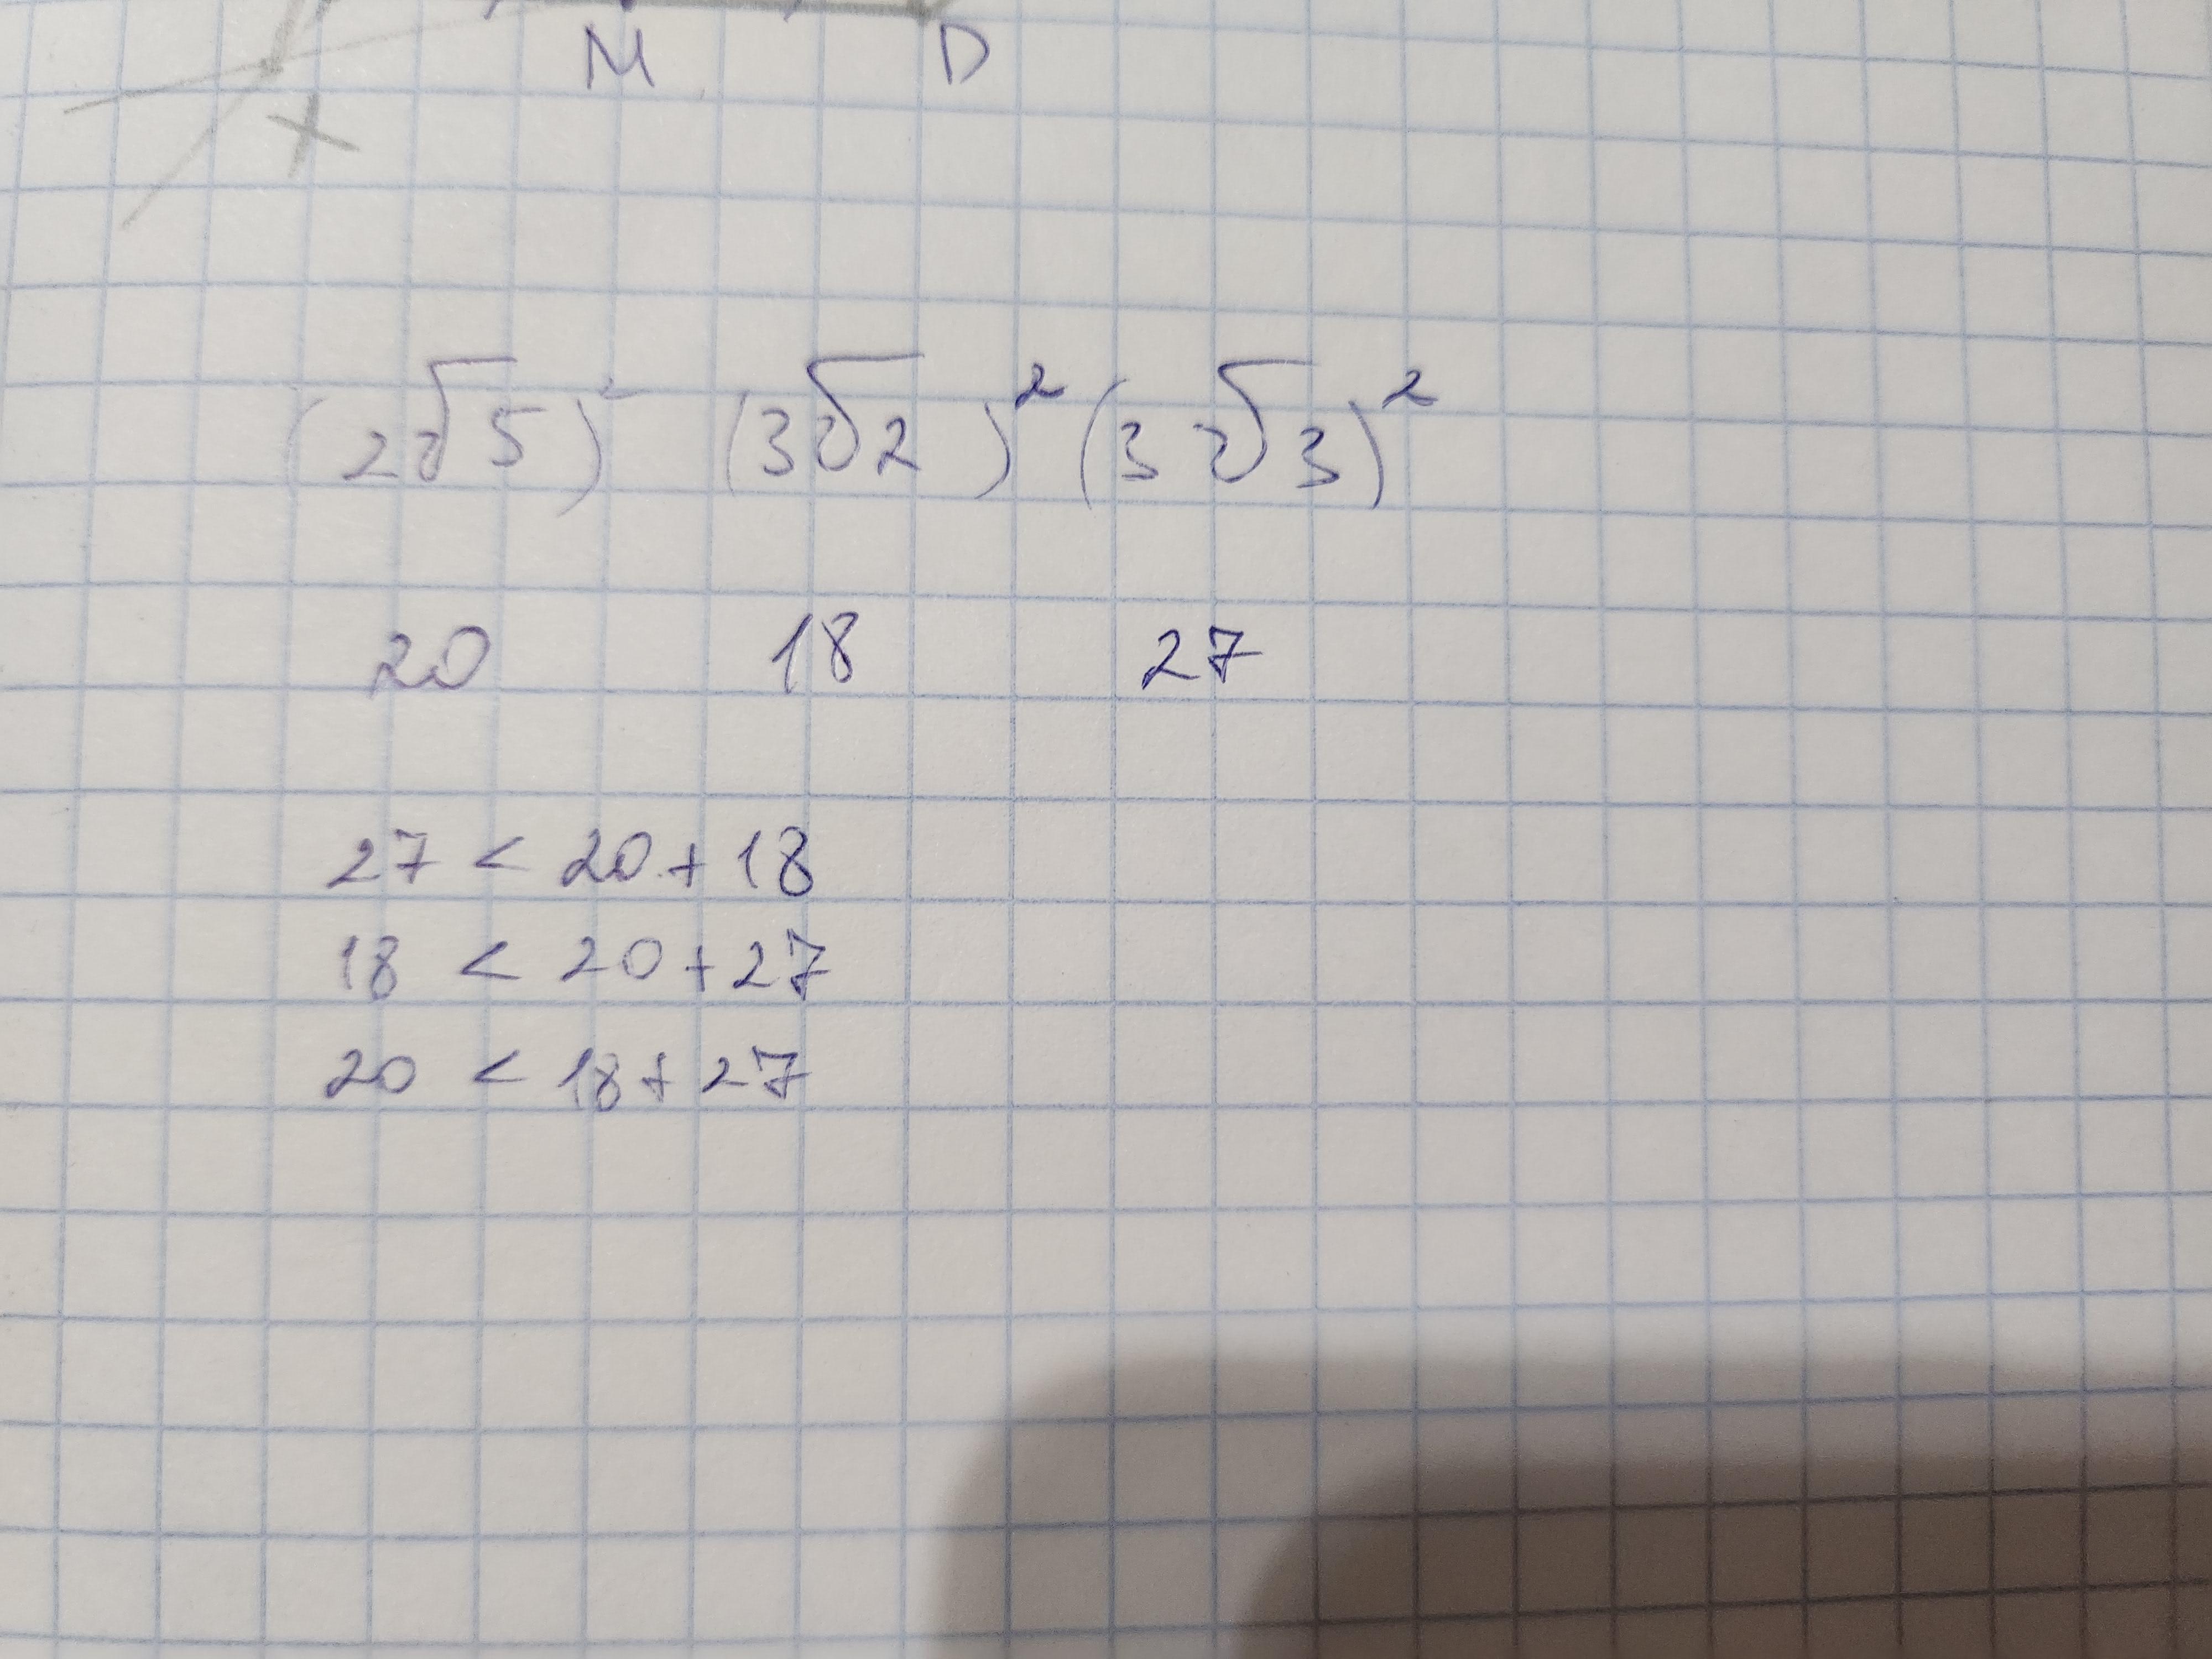 M D
X
(2√5)² (3√2)² (3√3)²
20 18 27
27 < 20 + 18
18 < 20 + 27
20 < 18 + 27